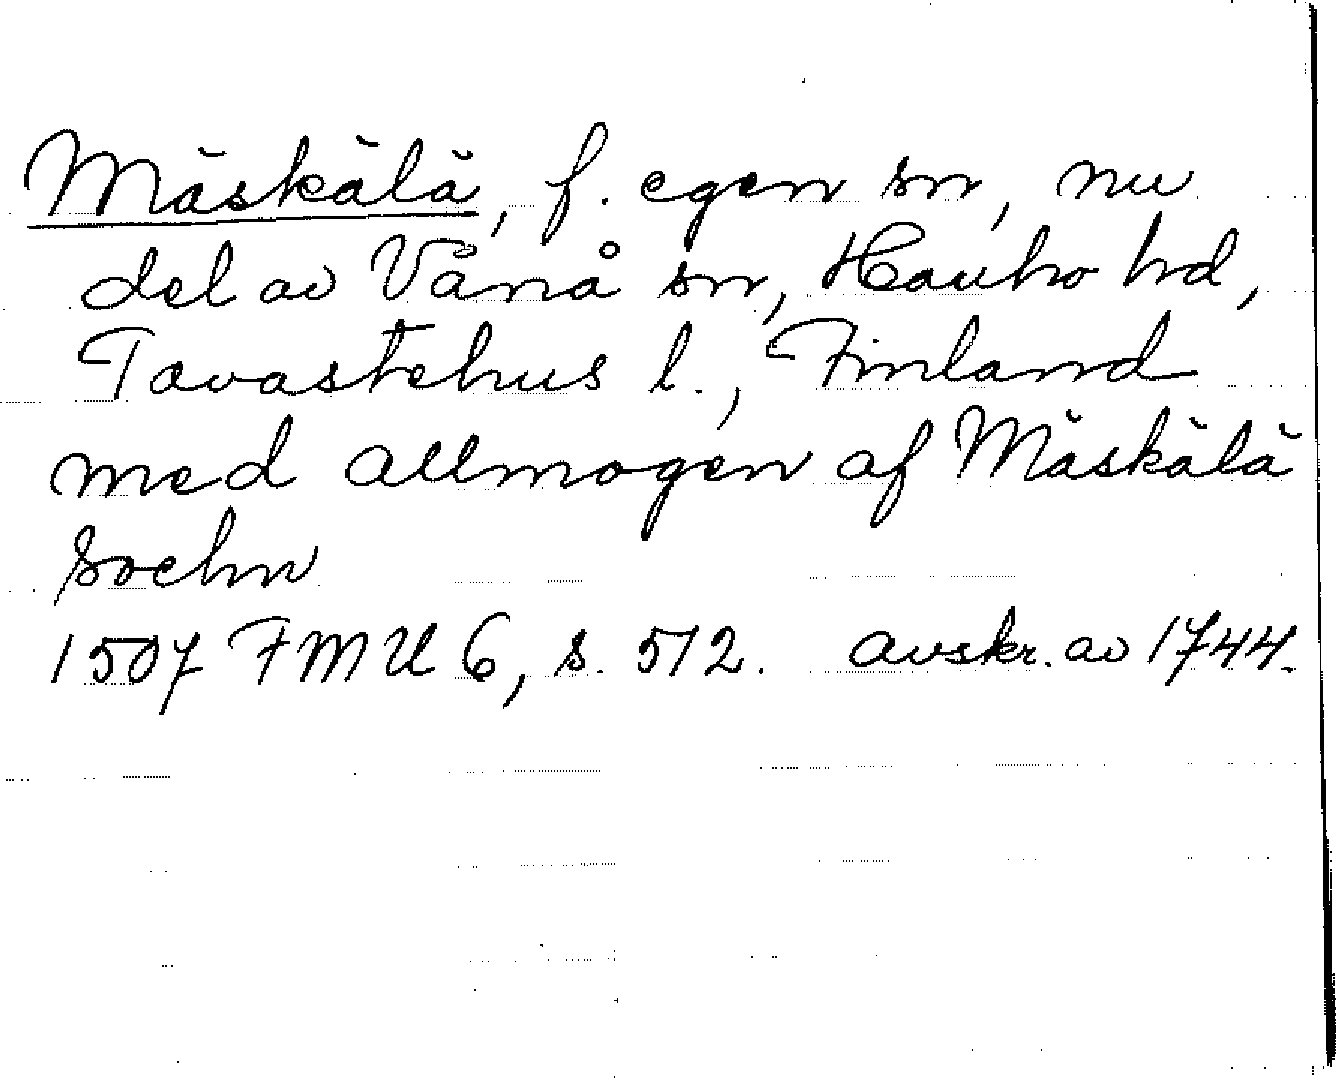 Mäskälä, f. egen sn, nu
del av Vånå sn, Hauho hd,
Tavastehus l., Finland
med allmogen af Mäskälä
sochn
1507 FMU 6, s. 512. avskr. av 1744.